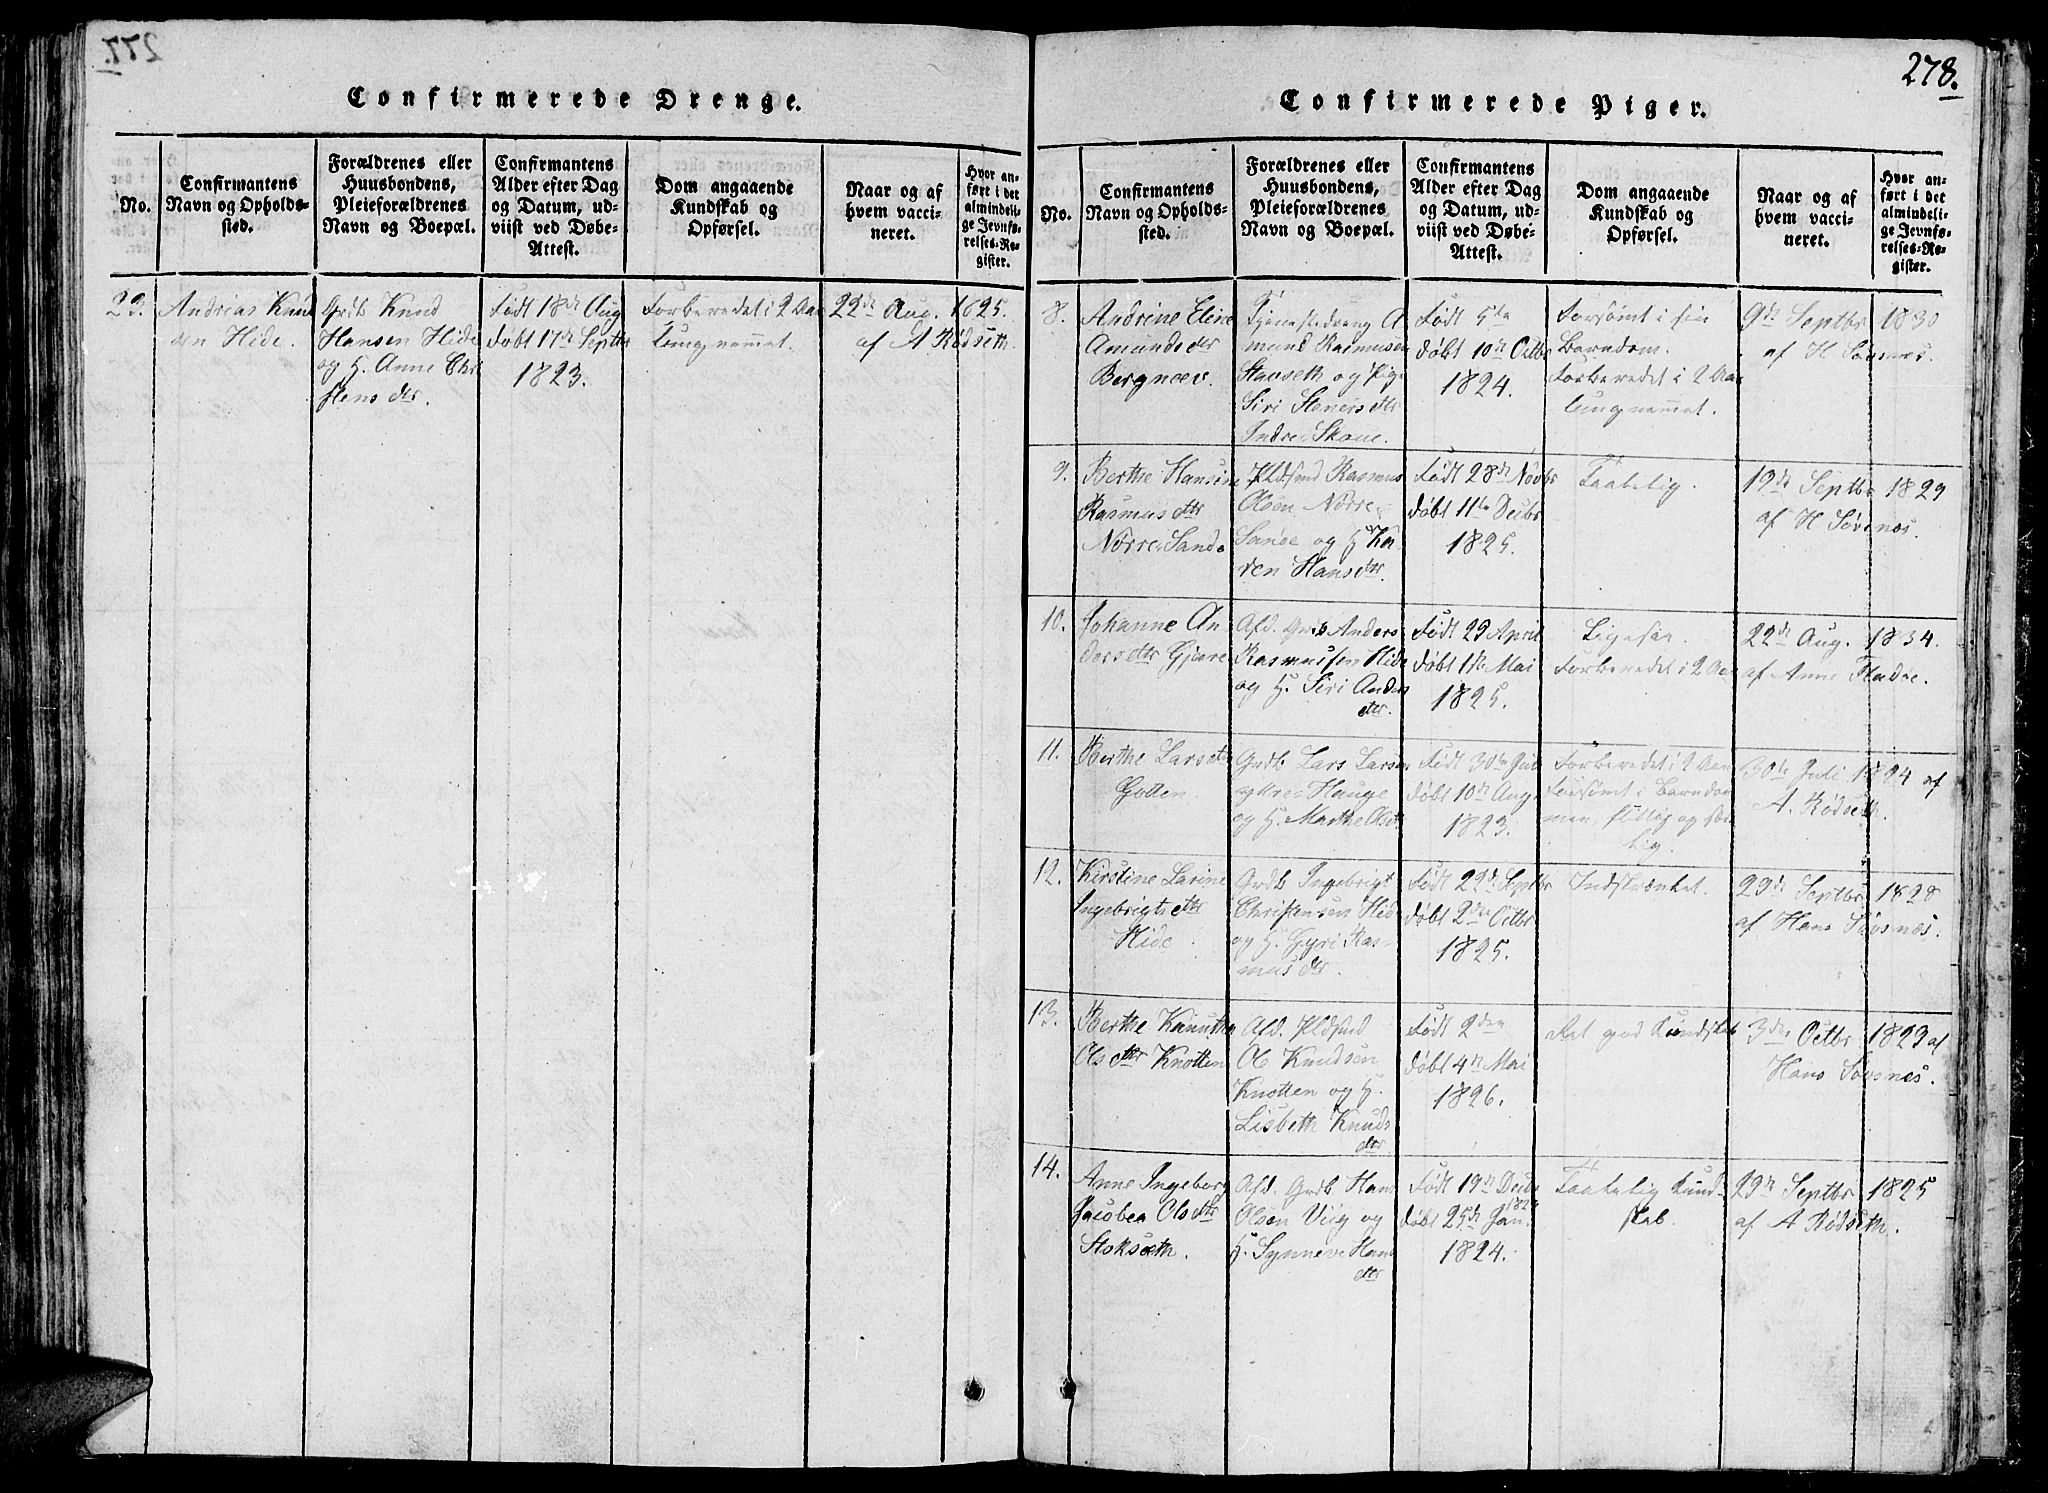 277.
Confirmerede Drenge.
No.
Confirmantens
Navn og Opholds-
sted.
Forældrenes eller
Huusbondens,
Pleieforældrenes
Navn og Boepæl.
Confirmantens
Alder efter Dag
og Datum, ud-
viist ved Døbe-
Attest.
Dom angaaende
Kundskab og
Opførsel.
Naar og af
hvem vacci-
neret.
Hvor an-
ført i det
almindeli-
ge Jevnfø-
relses-Re-
gister.
23.
Andrias Knud
sen Hide.
Grdb Knud
Hansen Hide
og H. Anne Chri
stens dtr.
Født 18de Aug
døbt 17de Septbr
1823.
Forberedet i 2 Aar
tungnemmet.
22de Aug. 1825.
af A Rødseth.
278.
Confirmerede Piger.
No.
Confirmantens
Navn og Opholds-
sted.
Forældrenes eller
Huusbondens,
Pleieforældrenes
Navn og Boepæl.
Confirmantens
Alder efter Dag
og Datum, ud-
viist ved Døbe-
Attest.
Dom angaaende
Kundskab og
Opførsel.
Naar og af
hvem vacci-
neret.
Hvor an-
ført i det
almindeli-
ge Jevnfø-
relses-Re-
gister.
8.
Andrine Eline
Amunds dtr
Bergnæv.
Tjenestedreng A
mund Rasmusen
Stavseth og Pige
Siri Steners dtr
Indre-Skone.
Født 5te
døbt 10de Octbr
1824.
Forsømt i sin
Barndom.
Forberedet i 2 Aar
tungnemmet.
9de Septbr 1830
af H Søvsnes.
9.
Berthe Hansine
Rasmus dtr
Nørre-Sande
Pldsmd Rasmus
Olsen Nørre-
Sande og H Ka-
ren Hans dtr.
Født 28de Novbr
døbt 11te Decbr
1825.
Taalelig.
19de Septbr 1829
af H Søvsnes.
10.
Johanne An
ders dtr Gjære
Afd. Grdb Anders
Rasmussen Hide
og H. Siri Anders
dtr.
Født 29 April
døbt 1de Mai
1825.
Ligesaa.
Forberedet i 2 Aar
22de Aug. 1834.
af Anne Fladøe.
11.
Berthe Lars dtr
Gotten.
Grdb Lars Larsen
yttre-Hauge
og H. Marthe Olsdtr
Født 30te Juli
døbt 10de Aug.
1823.
Forberedet i 2 Aar
forsømt i Barndom
men, flittig og sæ
lig.
30te Juli 1824 af
A. Rødseth.
12.
Kirstine Larine
Ingebrigts dtr
Hide.
Grdb Ingebrigt
Christensen Hide
og H. Gyri Ras-
mus dtr.
Født 22de Septbr
døbt 2den Octbr
1825.
Indskrænket.
29de Septbr 1828
af Hans Søvsnes.
13.
Berthe Knuutha
Ols dtr Knotten
Afd. Pldsmd
Ole Knudsen
Knotten og H.
Lisbeth Knuds
dtr
Født 2den
døbt 4de Mai
1826.
Ret god Kundskab
3die Octbr 1829 af
Hans Søvsnes.
14.
Anne Ingeborg
Jacobea Ols dtr
Stokseth.
Afd. Grdb Hans
Olsen Viig og
H. Synneve Hans
dtr
Født 19de Decbr
døbt 25de Jan.
1824.
Taalelig Kund-
skab.
29de Septbr 1825
af A Rødseth.